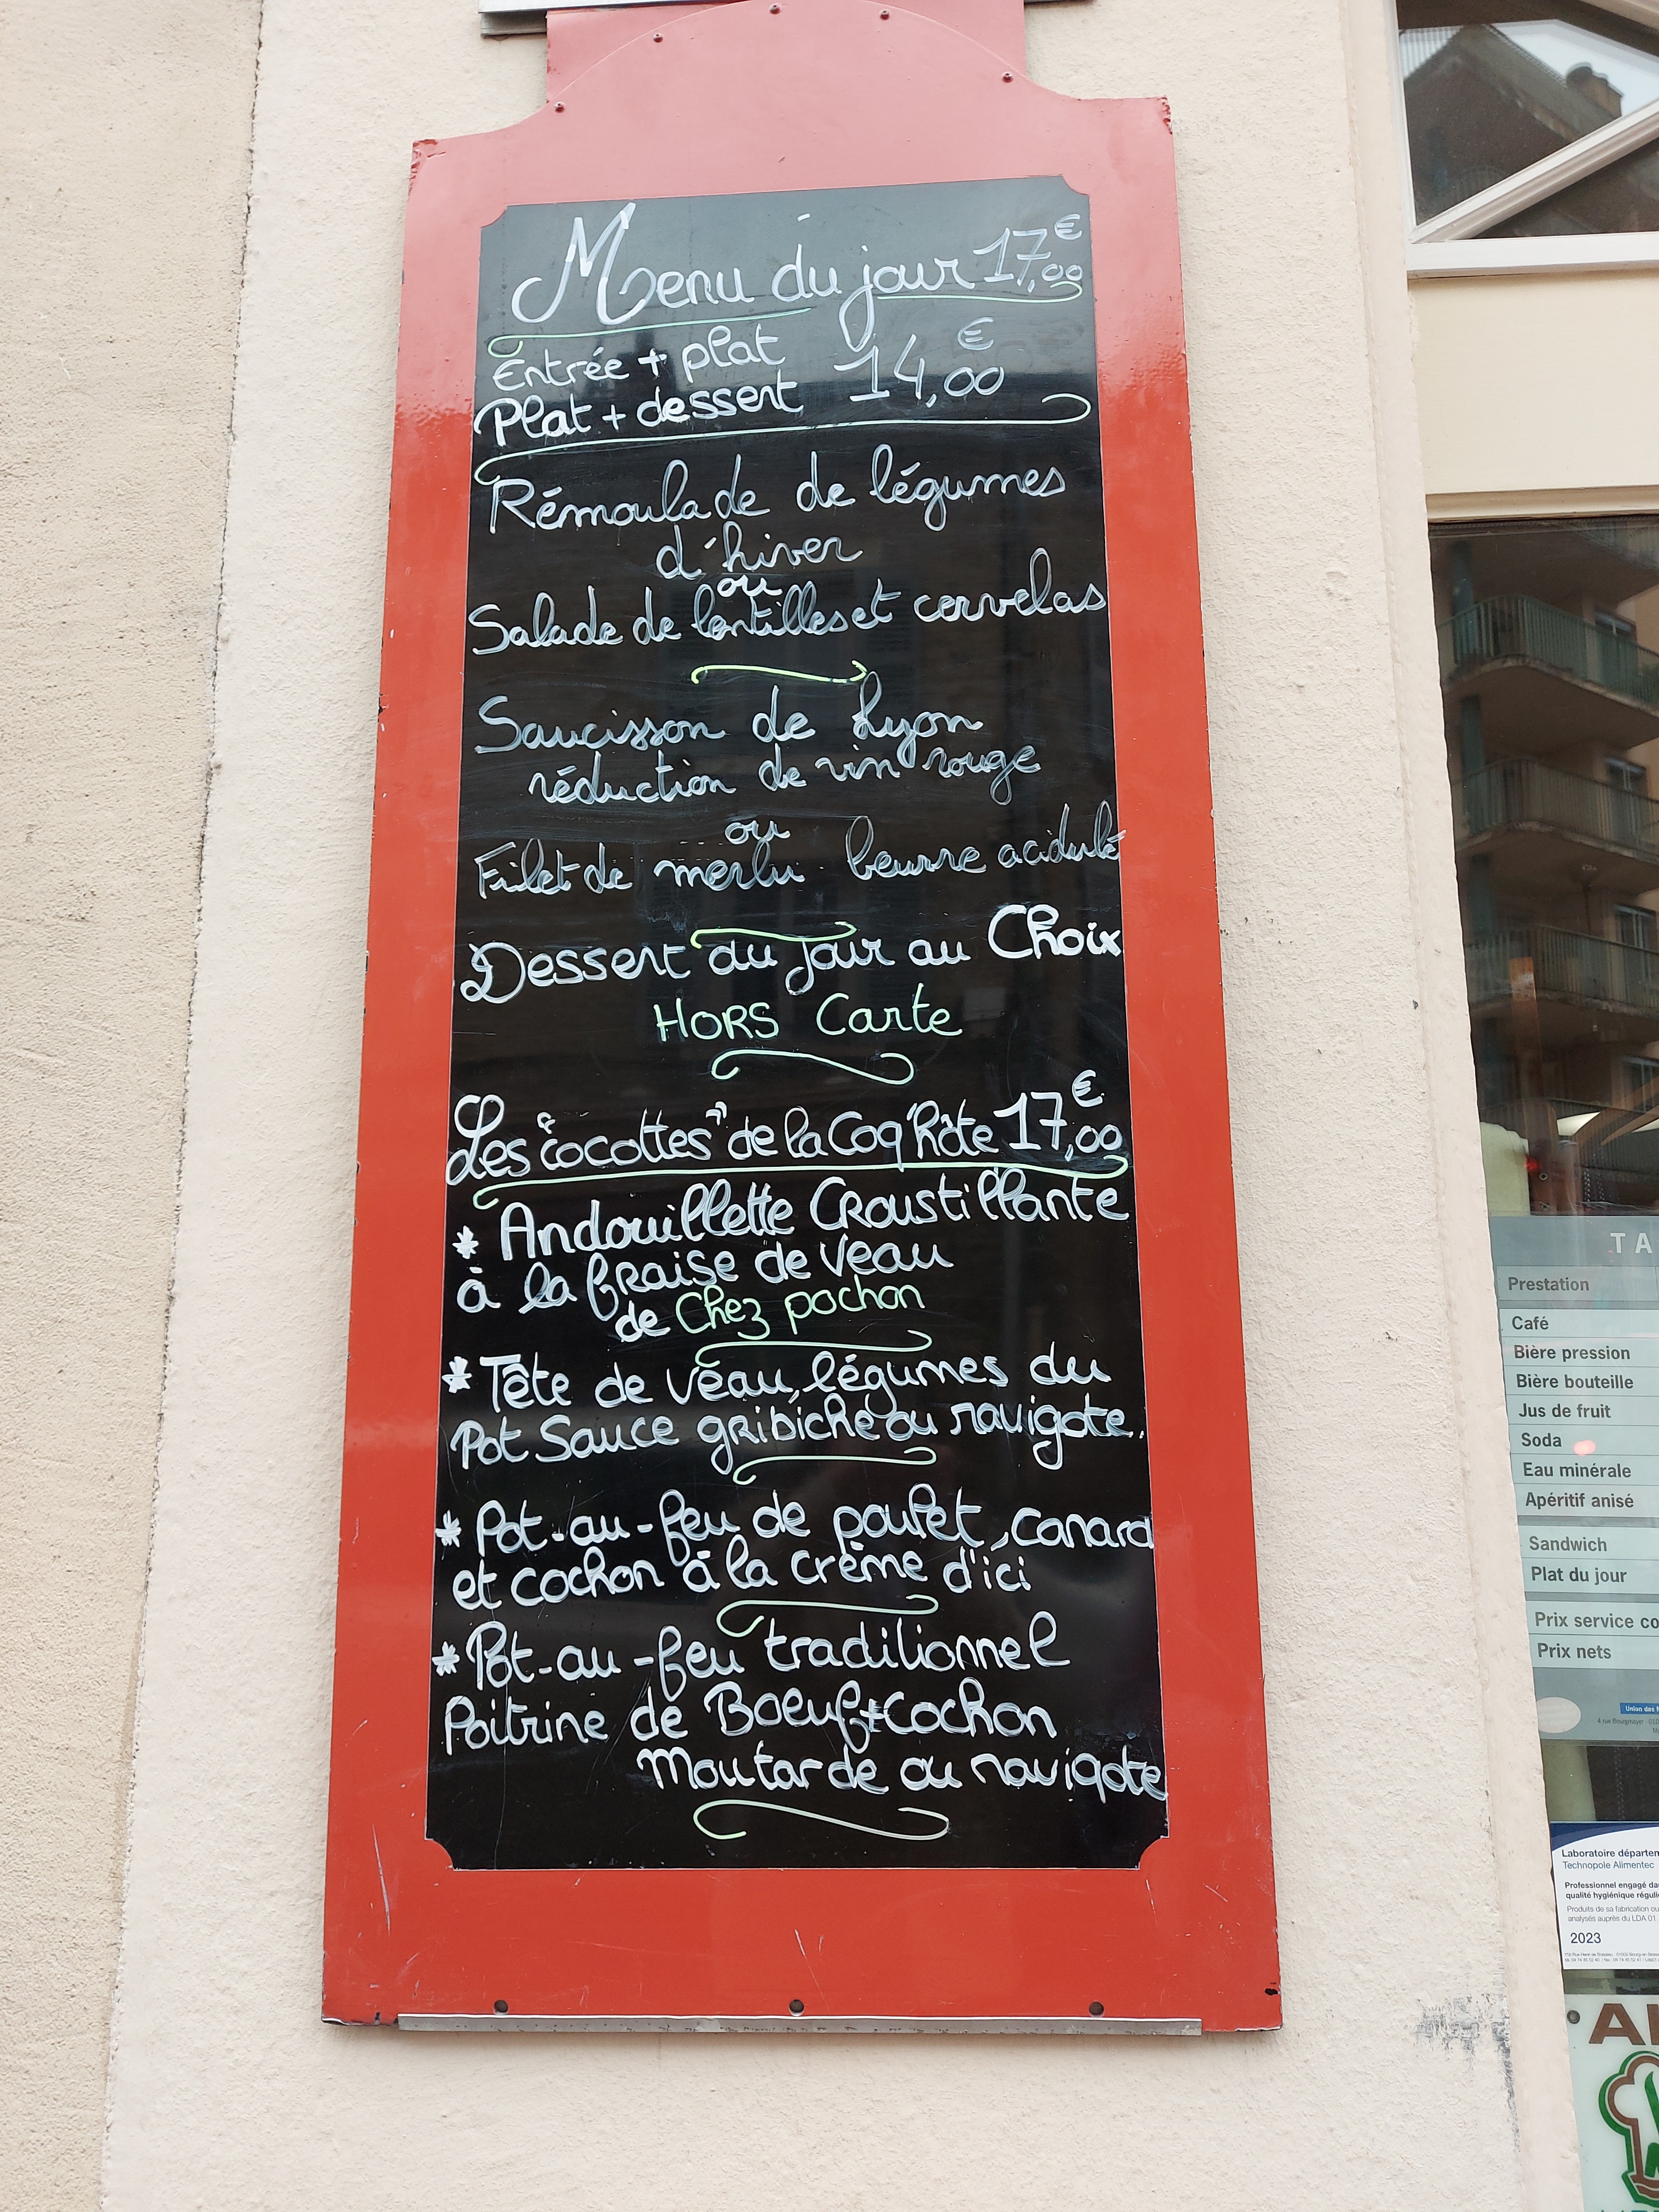 Menu du jour 17,00€
Entrée + plat
Plat + dessert 14,00€
Rémoulade de légumes
d'hiver
ou
Salade de lentilles et cervelas
Saucisson de Lyon
réduction de vin rouge
ou
Filet de merlu beurre acidulé
Dessert du jour au Choix
HORS Carte
Les "cocottes" de la Coq'hôte 17,00€
* Andouillette Croustillante
à la fraise de veau
de Chez pochon
* Tête de veau, légumes du
Pot Sauce gribiche ou ravigote.
* Pot-au-feu de poulet, canard
et cochon à la crème d'ici
* Pot-au-feu traditionnel
Poitrine de Boeuf + cochon
Moutarde ou ravigote
TA
Prestation
Café
Bière pression
Bière bouteille
Jus de fruit
Soda
Eau minérale
Apéritif anisé
Sandwich
Plat du jour
Prix service co
Prix nets
Union des
4 rue Bourgmayer
Laboratoire départem
Technopole Alimentec
Professionnel engagé da
qualité hygiénique réguli
Produits de sa fabrication ou
analysés auprès du LDA 01
2023